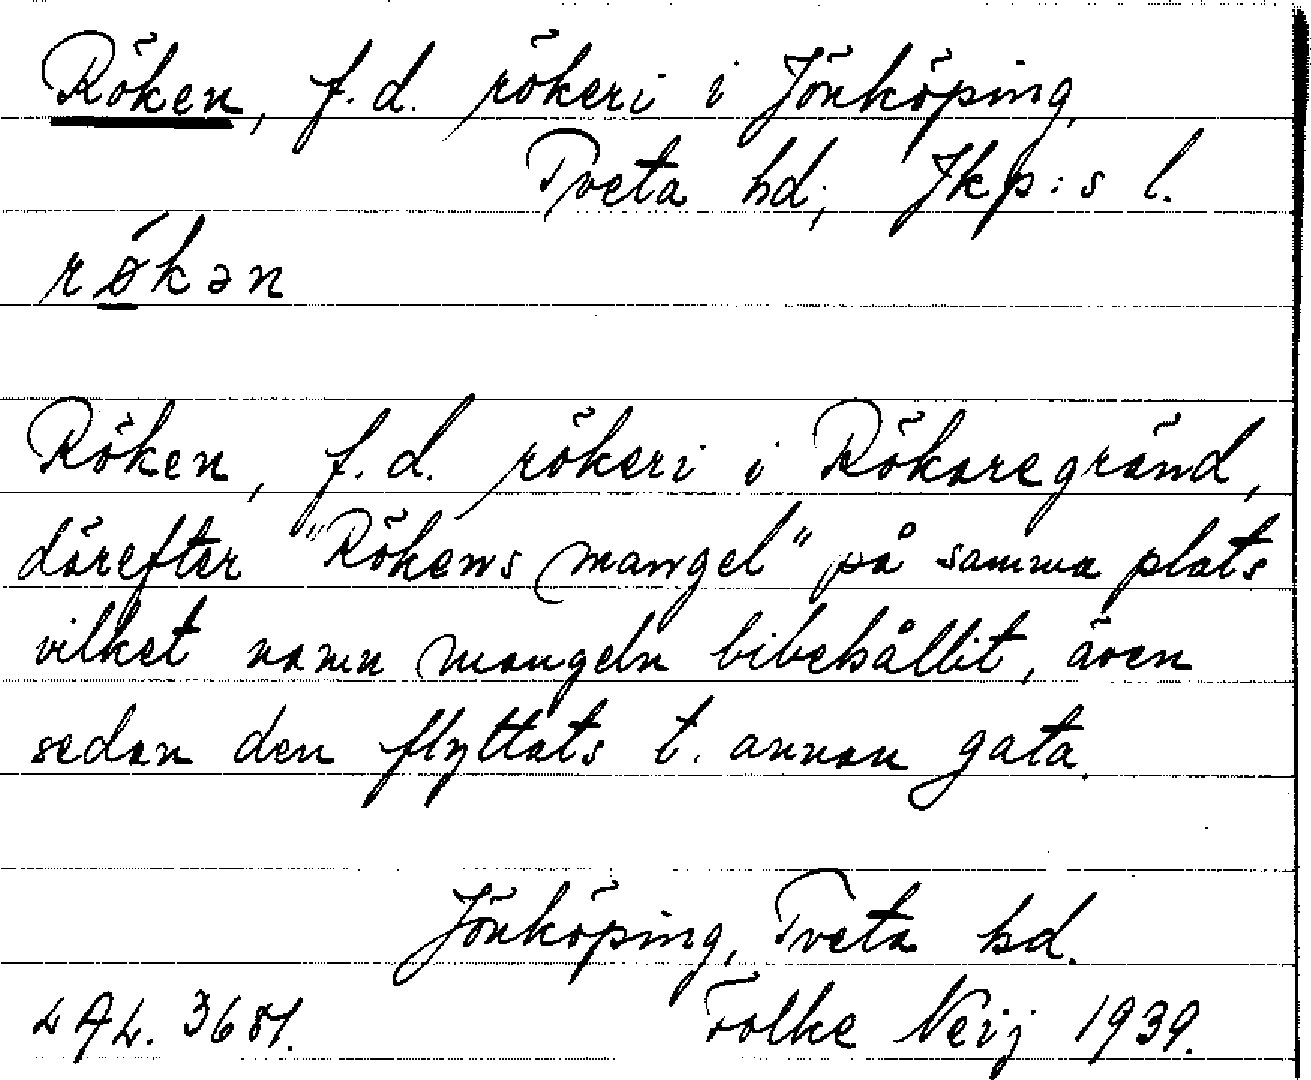 Röken, f.d. rökeri i Jönköping,
Tveta hd, Jkp:s l.
røkən
Röken, f.d. rökeri i Rökaregränd,
därefter "Rökens mangel" på samma plats
vilket namn mangeln bibehållit, även
sedan den flyttats t. annan gata.
Jönköping, Tveta hd.
Folke Neij 1939.